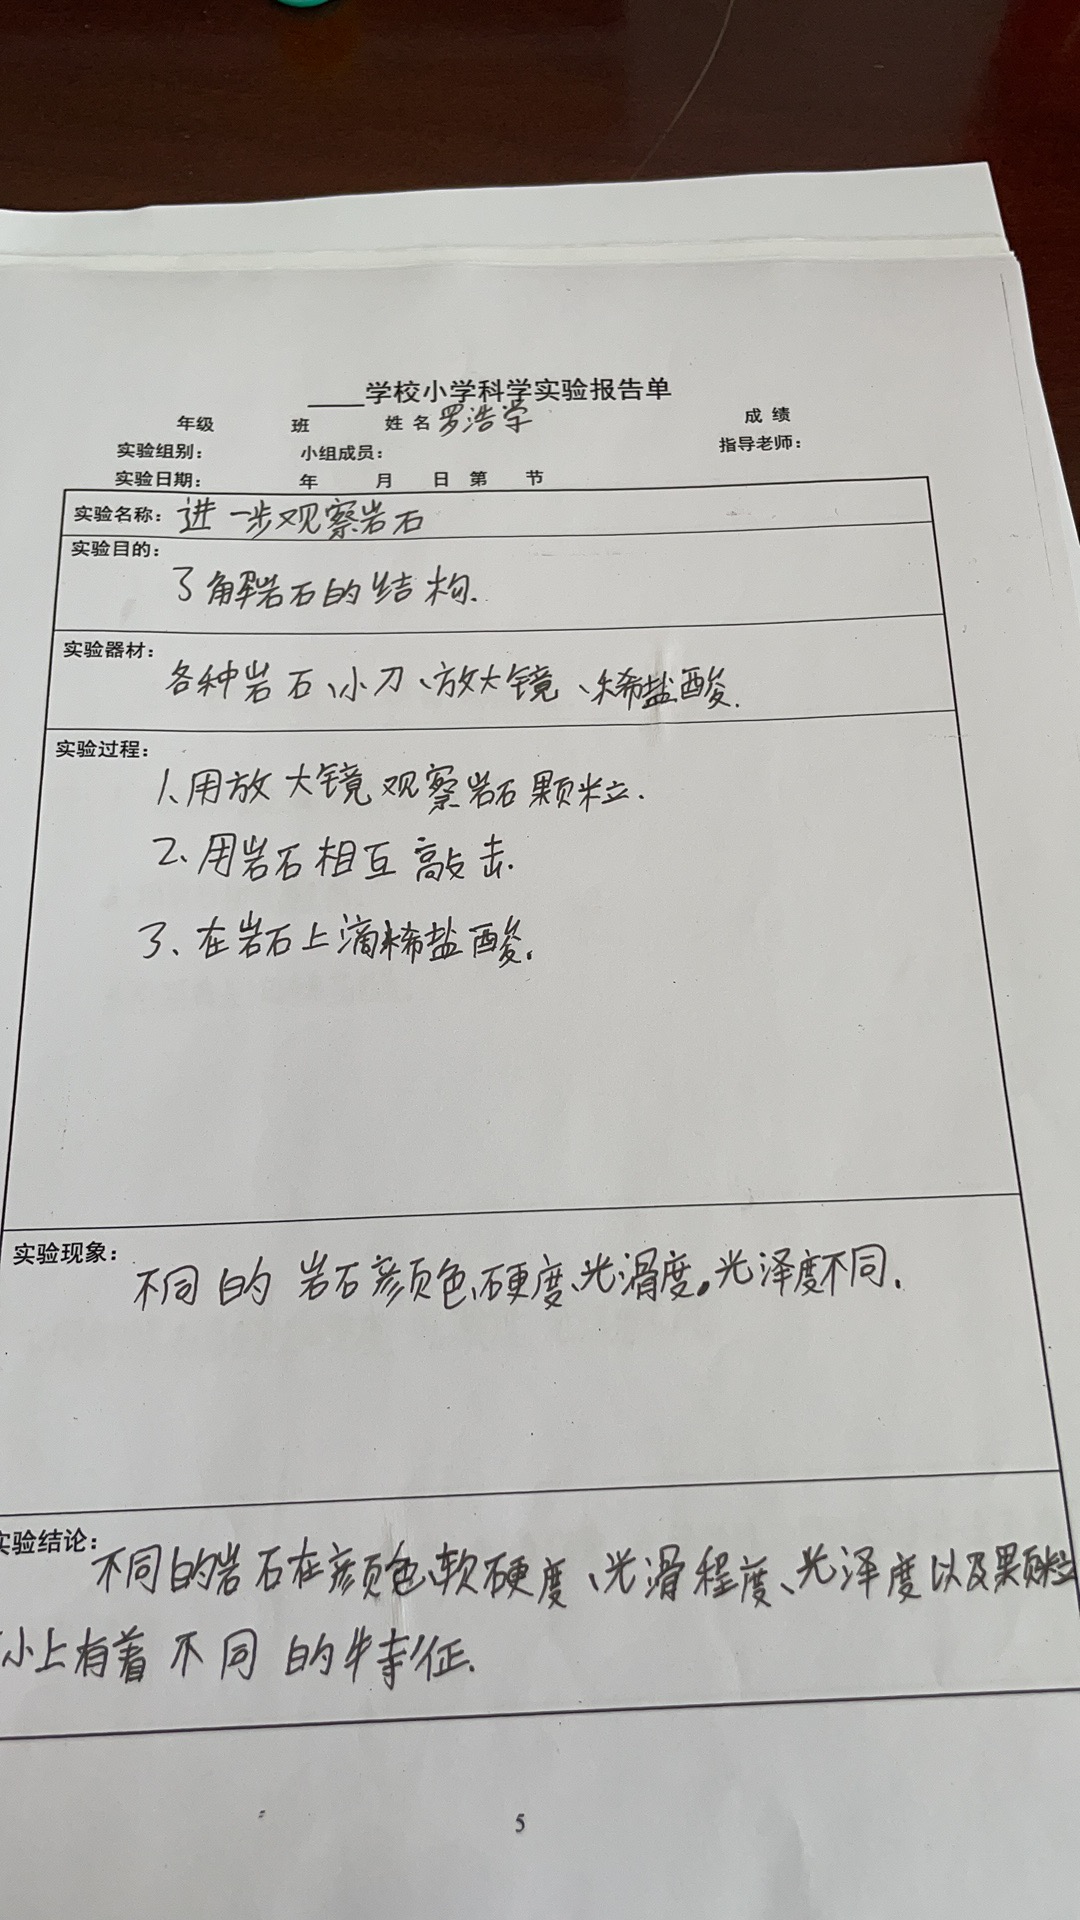 ____学校小学科学实验报告单
年级 班 姓名 罗浩学 成绩
实验组别： 小组成员： 指导老师：
实验日期： 年 月 日 第 节
实验名称：进一步观察岩石
实验目的：
了解岩石的结构.
实验器材：
各种岩石、小刀、放大镜、稀盐酸.
实验过程：
1、用放大镜观察岩石颗粒.
2、用岩石相互敲击.
3、在岩石上滴稀盐酸。
实验现象：
不同的岩石颜色、硬度、光滑度。光泽度不同.
实验结论：
不同的岩石在颜色、软硬度、光滑程度、光泽度以及颗粒
小上有着不同的特征.
5